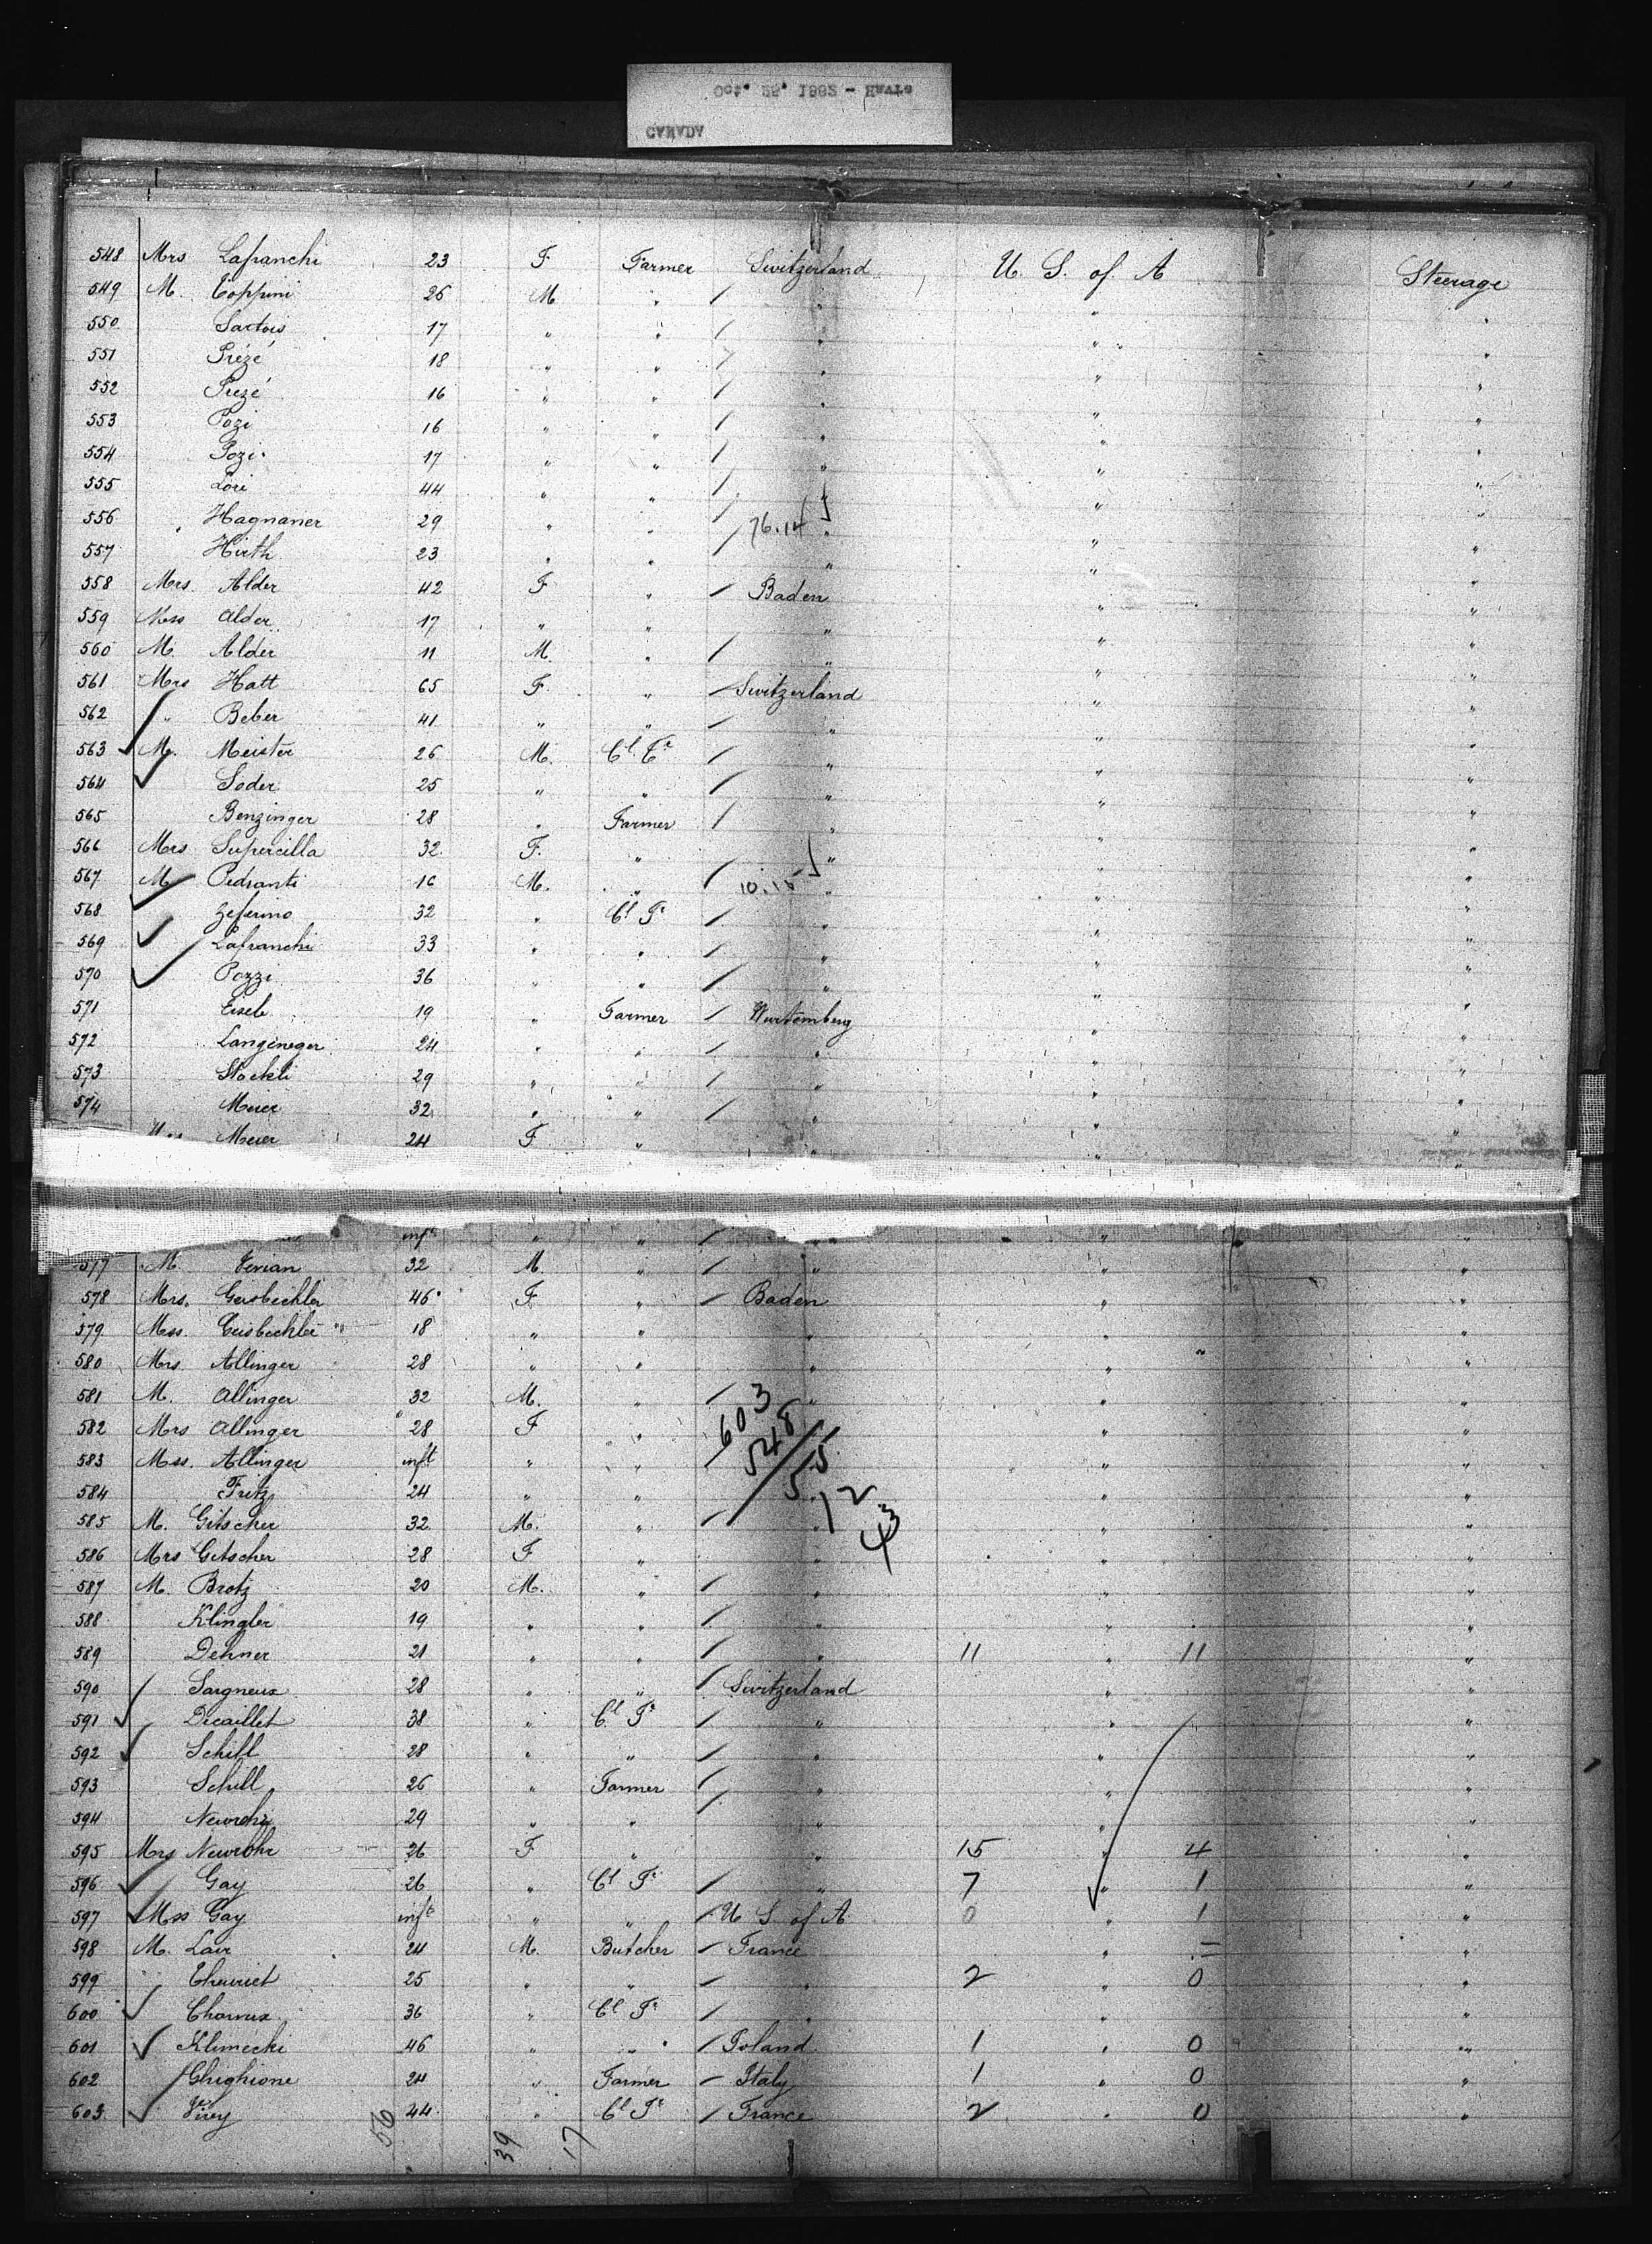 Oct. 25. 1882 - Havre
CANADA
548 Mrs Lafranchi 23 F Farmer Switzerland U. S. of A Steerage
549 M. Toppini 26 M " / " " "
550 Sartois 17 " " / " " "
551 Prézé 18 " " / " " "
552 Prezé 16 " " / " " "
553 Pozi 16 " " / " " "
554 Pozi 17 " " / " " "
555 Lori 44 " " / " " "
556 Hagnaner 29 " " / 76.14 " " "
557 Hirth 23 " " / " " "
558 Mrs. Alder 42 F " / Baden " "
559 Mss Alder 17 " " " " "
560 M. Alder 11 M. " / " " "
561 Mrs Hatt 65 F. " / Switzerland " "
562 " Beber 41 " " / " " "
563 M. Meister 26 M. Cl. Tr / " " "
564 Soder 25 " " / " " "
565 Benzinger 28 " Farmer / " " "
566 Mrs Supercilla 32 F. " " " "
567 M Pedranti 16 M. " / 10.15 " " "
568 Zeferino 32 " Cl Tr / " " "
569 Lafranchi 33 " " / " " "
570 Pozzi 36 " " / " " "
571 Eisele 19 " Farmer / Wurtemberg " "
572 Langeneger 24 " " / " " "
573 Stockli 29 " " / " " "
574 Meier 32 " " / " " "
Mrs Meier 24 F " " " "
inft " " / " " "
577 M. Verian 32 M. " / " " "
578 Mrs. Geisbechler 46 F " / Baden " "
579 Mss. Geisbechler 18 " " " " "
580 Mrs. Allinger 28 " " " " "
581 M. Allinger 32 M. " / " " "
582 Mrs Allinger 28 F " " "
583 Mss. Allinger inft " " " "
584 Fritz 24 " " " "
585 M. Gitscher 32 M. " / " " "
586 Mrs Gitscher 28 F " " "
587 M. Brotz 20 M. " / " " "
588 Klingler 19 " " / " " "
589 Dehner 21 " " / " 11 " 11 "
590 Sargneux 28 " " / Switzerland " "
591 Decaillet 38 " Cl. Tr / " " "
592 Schill 28 " " / " " "
593 Schill 26 " Farmer / " " "
594 Newrohr 29 " " / " " "
595 Mrs Newrohr 26 F " " 15 " 4 "
596 Gay 26 " Cl Tr / " 7 " 1 "
597 Mss Gay inft " " / U S of A 0 " 1 "
598 M. Lair 24 M. Butcher / France " — "
599 " Theuriet 25 " " / " 2 " 0 "
600 Charvux 36 " Cl Tr / " " "
601 Klimecki 46 " " / Poland 1 " 0 "
602 Ghighione 24 " Farmer / Italy 1 " 0 "
603 Virey 44 " Cl Tr / France 2 " 0 "
603
548
55
12
43
56 39 17